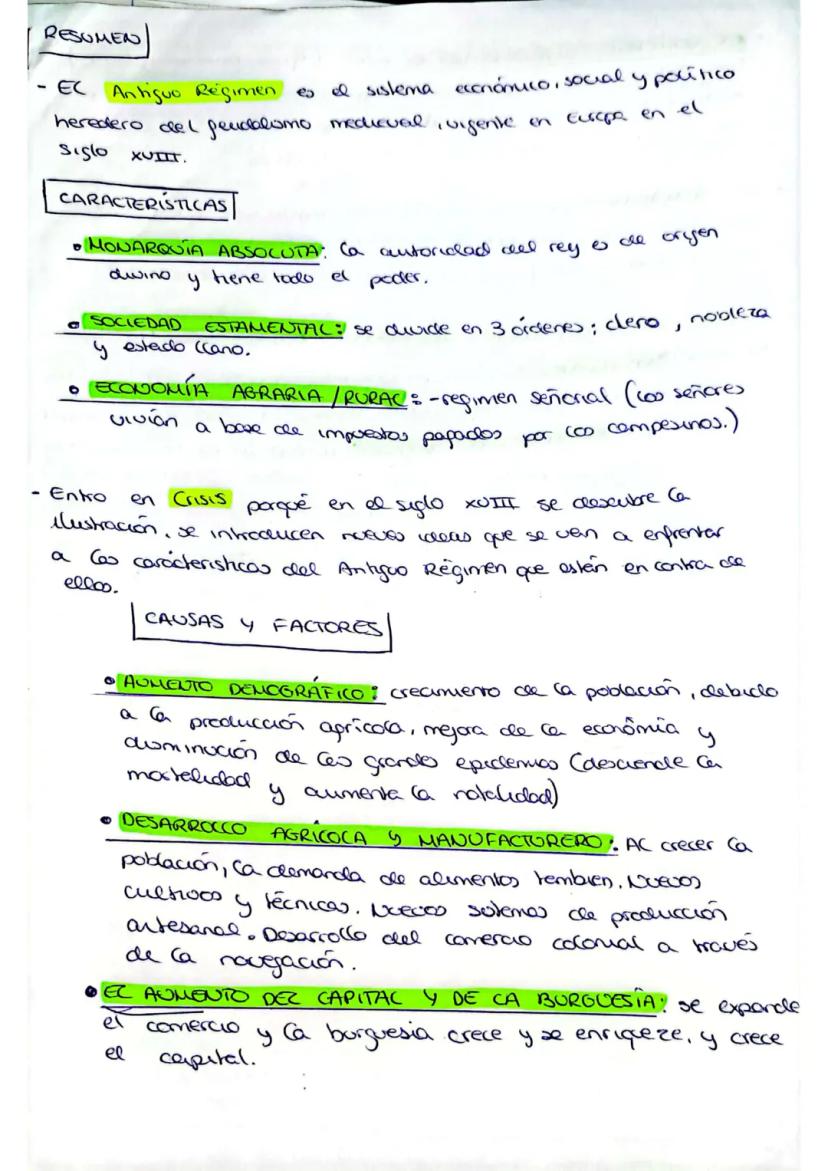 RESUMEN
- El Antiguo Régimen es el sistema económico, social y político
heredero del feudalismo medieval, vigente en Europa en el
siglo XVIII.
CARACTERÍSTICAS
• MONARQUÍA ABSOLUTA: la autoridad del rey es de origen
divino y tiene todo el poder.
• SOCIEDAD ESTAMENTAL: se divide en 3 órdenes; clero, nobleza
y estado llano.
• ECONOMÍA AGRARIA / RURAL: - regimen señorial (los señores
vivían a base de impuestos pagados por los campesinos.)
- Entro en Crisis porqué en el siglo XVIII se descubre la
ilustración, se introducen nuevas ideas que se van a enfrentar
a las carácteristicas del Antiguo Régimen que están en contra de
ellos.
CAUSAS Y FACTORES
• AUMENTO DEMOGRÁFICO: crecimiento de la población, debido
a la producción agrícola, mejora de la económia y
disminución de las grandes epidemias (desciende la
mortalidad y aumenta la natalidad)
• DESARROLLO AGRÍCOLA Y MANUFACTURERO: Al crecer la
población, la demanda de alimentos tambien. Nuevos
cultivos y técnicas. Nuevos sistemas de producción
artesanal. Desarrollo del comercio colonial a través
de la navegación.
• EL AUMENTO DEL CAPITAL Y DE LA BURGUESÍA: se expande
el comercio y la burguesia crece y se enriqueze, y crece
el capital.